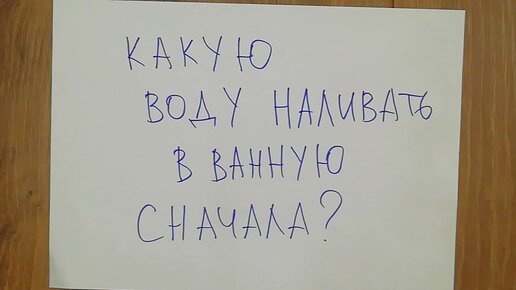 КАКУЮ
ВОДУ НАЛИВАТЬ
В ВАННУЮ
СНАЧАЛА?